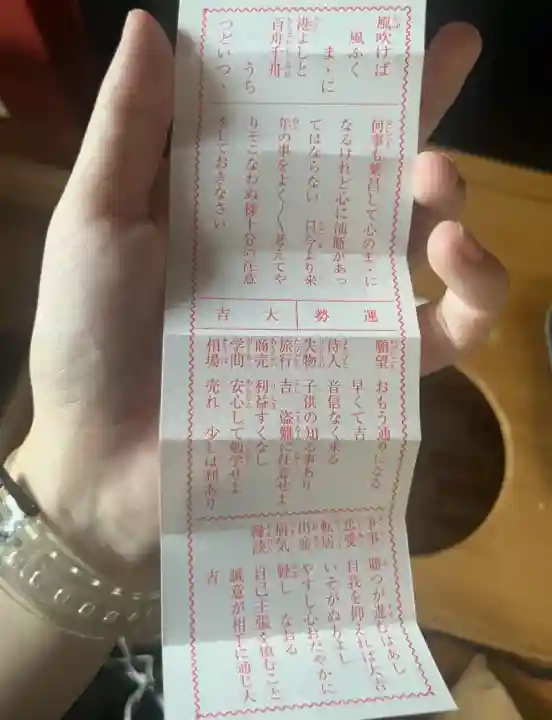 風吹けば
風ふく
まゝに
港よしと
百舟千舟
うち
つどいつゝ
何事も繁昌して心のまゝに
なるけれど心に油断があっ
てはならない 只今より来
年の事をよく〱考えてや
りそこなわぬ様十分の注意
をしておきなさい
運勢 大吉
願望 おもう通りになる
早くて吉
待人 音信なく来る
失物 子供の知る事あり
旅行 吉 盗難に注意せよ
商売 利益すくなし
学問 安心して勉学せよ
相場 売れ 少しは利あり
争事 勝つが進むはあし
恋愛 自我を抑えれば大吉
転居 いそがぬがよし
出産 やすし心おだやかに
病気 軽し なおる
縁談 自己主張を慎むこと
誠意が相手に通じ大
吉